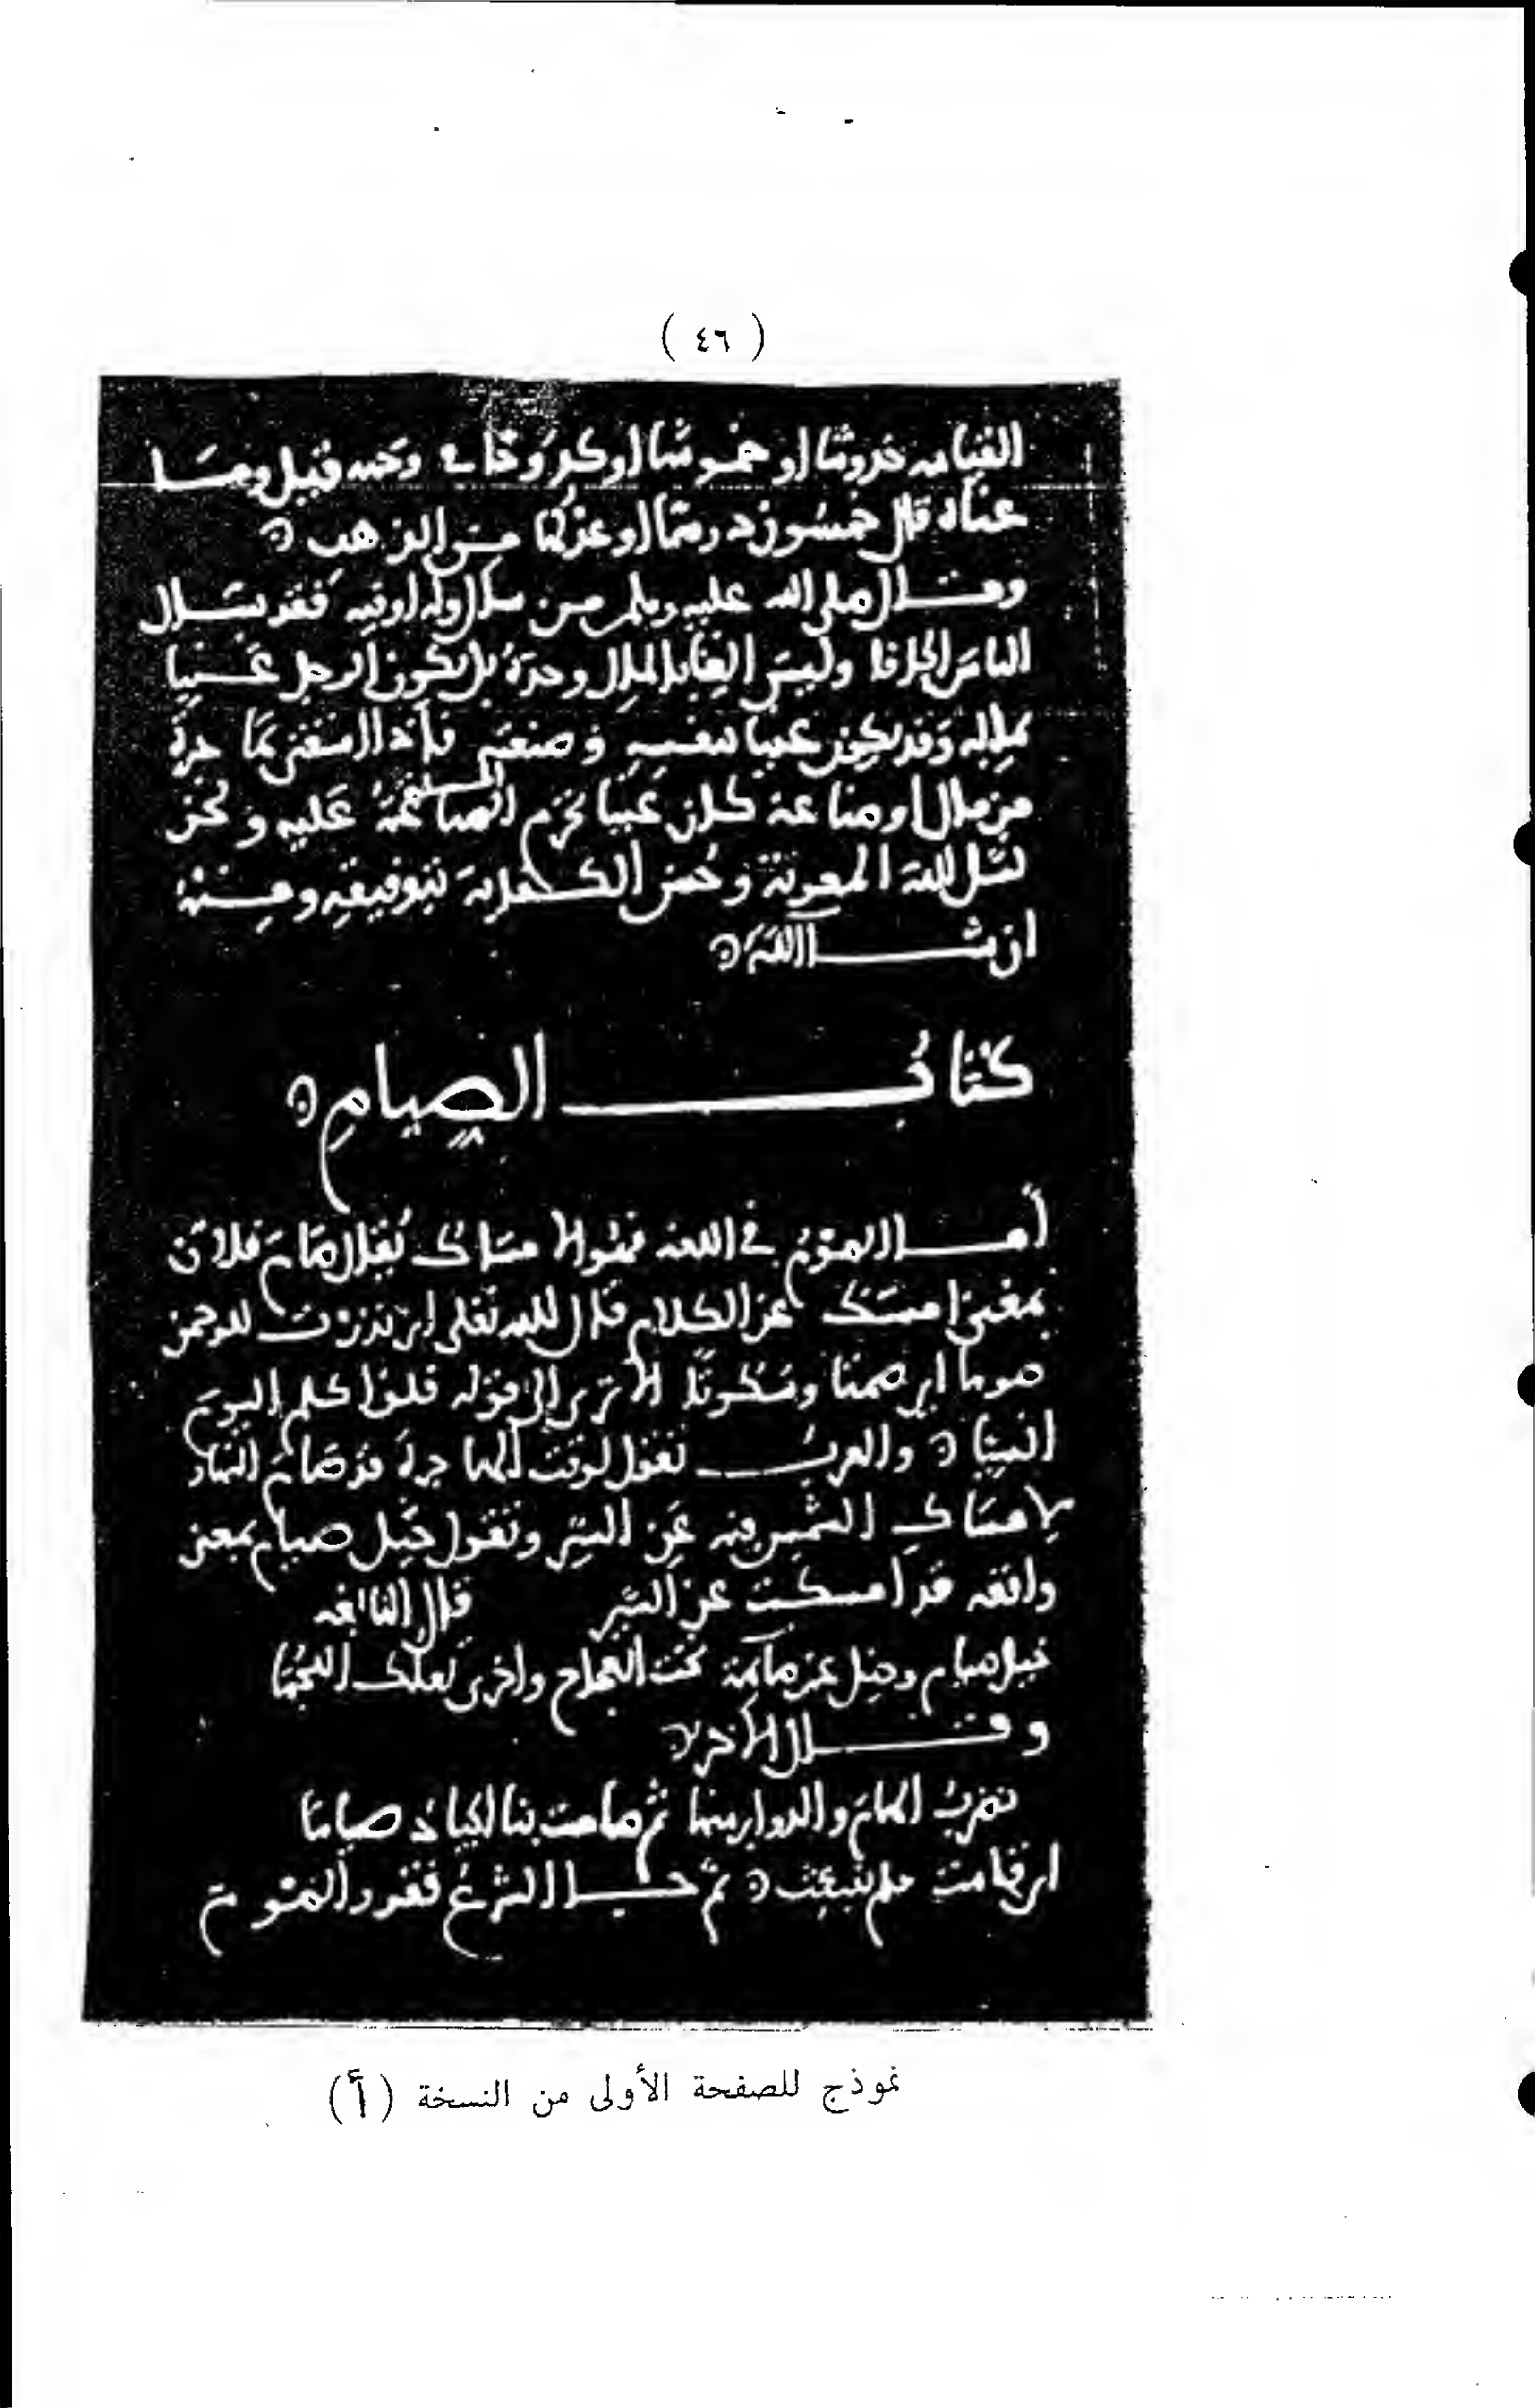 ( ٤٦ )
القيامه خدوشا او خموشا او كدوحا في وجهه قيل وما
غناه قال خمسون درهما او عدلها من الذهب
وقال صلى الله عليه وسلم من سال وله اوقيه فقد سال
الناس الحافا وليس الغنا بالمال وحده بل يكون الرجل غنيا
بماله وقد يكون غنيا بنفسه وصنعته فاذا استغنى بما
من مال او صناعة كان غنيا تحرم عليه ونحن
نسل الله المعونة وحسن الكفاية بتوفيقه ومنه
ان شا الله
كتاب الصيام
أما الصوم في اللغة فهو الامساك يقال صام فلان
بمعنى امسك عن الكلام قال الله تعلى اني نذرت للرحمن
صوما اي صمتا وسكوتا الا ترى الى قوله فلن اكلم اليوم
انسيا والعرب تقول لوقت الهاجرة قد صام النهار
لامساك الشمس فيه عن السير وتقول خيل صيام بمعنى
واقفه قد امسكت عن السير قال النابغه
خيل صيام وخيل غير صائمة تحت العجاج واخرى تعلك اللجما
وقال الاخر
نضرب الهام والدوابر منها ثم صامت بنا الجياد صياما
اي قامت فلم تنبعث ثم جا الشرع فقرر الصوم
نموذج للصفحة الأولى من النسخة (أ)